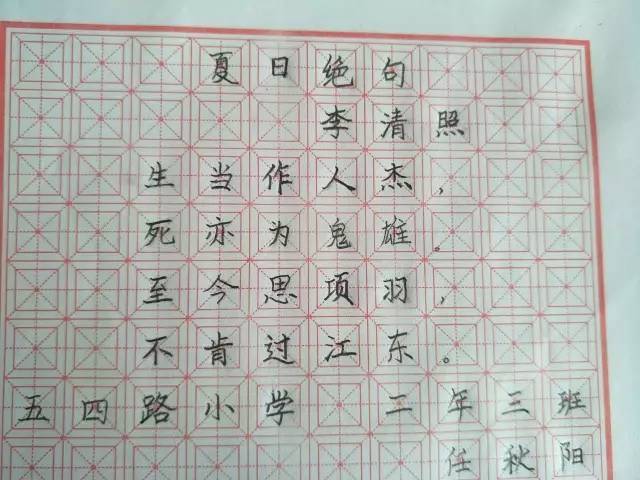 夏日绝句
李清照
生当作人杰，
死亦为鬼雄。
至今思项羽，
不肯过江东。
五四路小学 二年三班
任秋阳